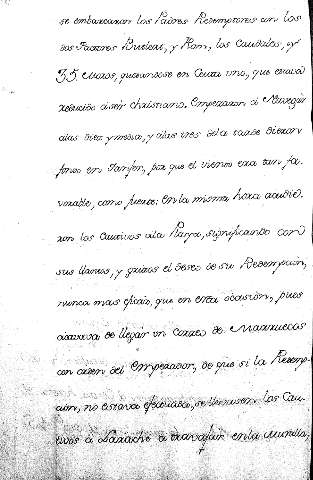 se embarcaron los Padres Redemptores con los
dos Factores Butler, y Ham, los Caudales, y
35. Moros, quedandose en Ceuta uno, que estava
reducido á ser Christiano. Empezaron á Navegar
á las diez y media, y á las tres de la tarde dieron
fondo en Tarifa, por que el viento era tan fa
vorable, como fuerte: En la misma hora acudie
ron los Cautivos á la Playa, significando con
sus llantos, y gritos el deseo de su Redempcion,
nunca mas eficaz, que en esta ocasion, pues
acavava de llegár un Correo de Marruecos
con orden del Emperador, de que si la Redemp
cion, no estava efectuada, se llevasen los Cau
tivos á Larache á travajar en la Muralla,